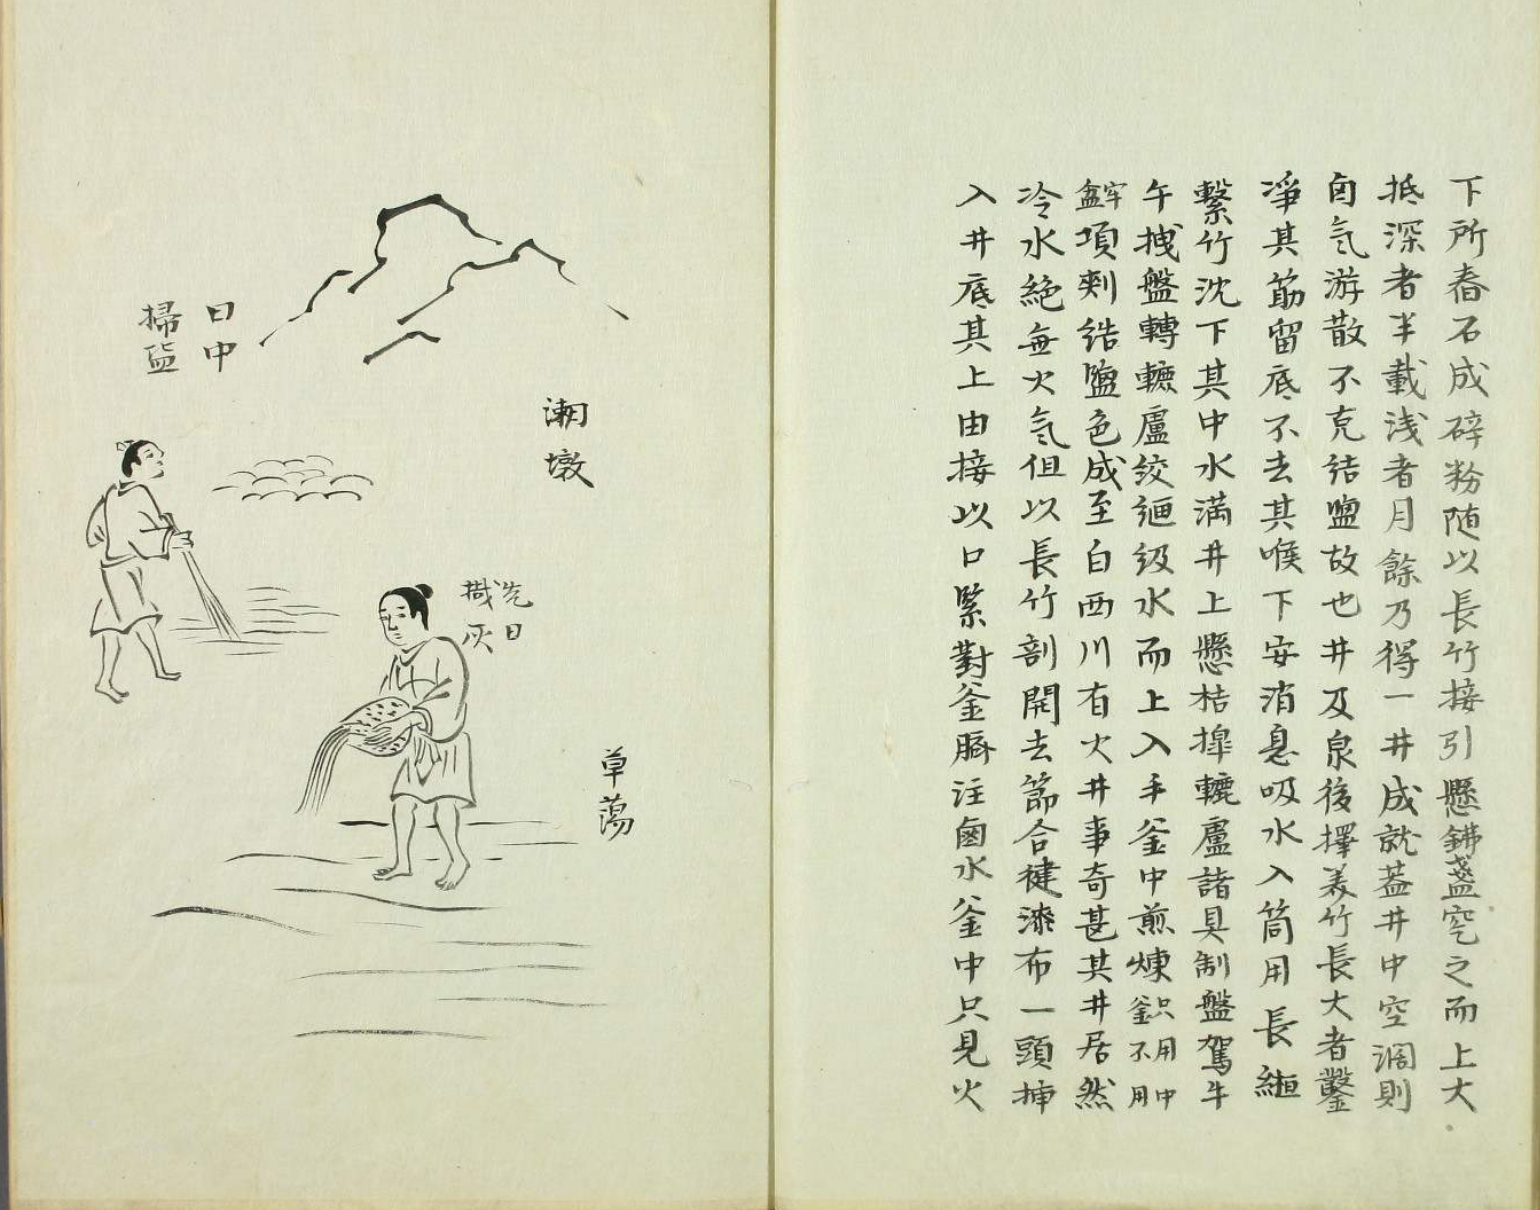 下所舂石成碎粉随以長竹接引懸銕盞穵之而上大
抵深者半載浅者月餘乃得一井成就蓋井中空濶則
卤氣游散不克結塩故也井及泉後擇美竹長大者鑿
淨其筋留底不去其喉下安消息吸水入筒用長縆
繫竹沈下其中水満井上懸桔槹轆盧諸具制盤駕牛
午拽盤轉轆盧絞縆汲水而上入手釜中煎煉只用中釜不用
牢盆頃刻結塩色成至白西川有火井事奇甚其井居然
冷水絶無火氣但以長竹剖開去節合縫漆布一頭挿
入井底其上由接以口緊對釜臍注鹵水釜中只見火
草蕩
潮墩
先日
撒灰
日中
掃盐